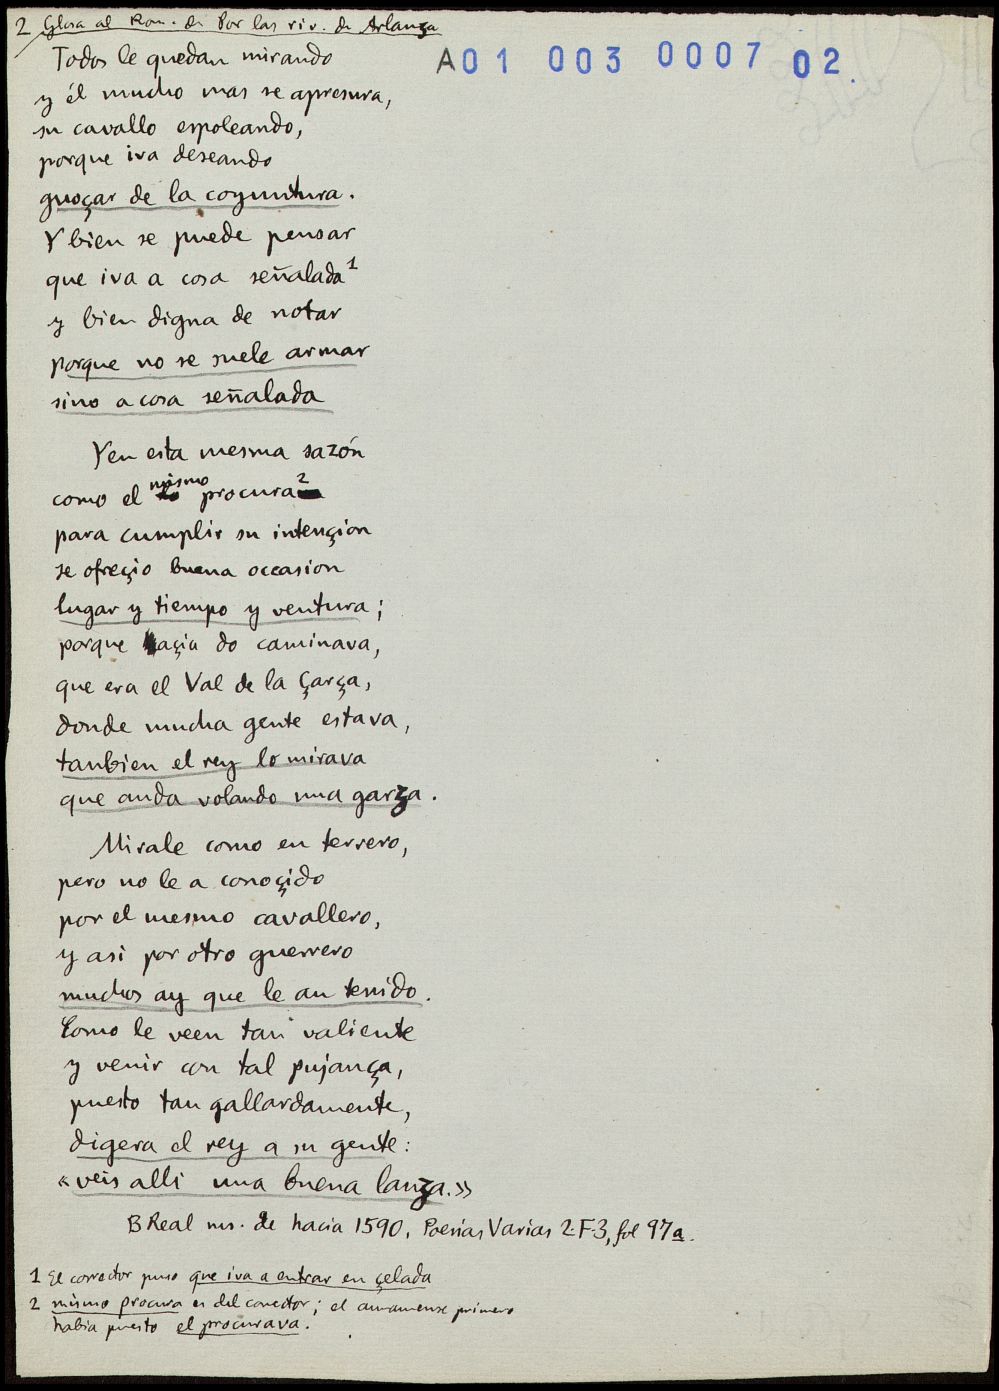 2 Glosa al Rom. de Por las riv. de Arlanza
A01 003 0007 02.
Todos le quedan mirando
y él mucho mas se apresura,
su cavallo espoleando,
porque iva deseando
guoçar de la coyuntura.
Y bien se puede pensar
que iva a cosa señalada1
y bien digna de notar
porque no se suele armar
sino a cosa señalada
Y en esta mesma sazón
como el mismo procura2
para cumplir su intençion
se ofreçio buena occasion
lugar y tiempo y ventura;
porque haçia do caminava,
que era el Val de la Çarça,
donde mucha gente estava,
tanbien el rey lo mirava
que anda volando una garza.
Mirale como en terrero,
pero no le a conoçido
por el mesmo cavallero,
y asi por otro guerrero
muchos ay que le an tenido.
Como le veen tan valiente
y venir con tal pujança,
puesto tan gallardamente,
digera el rey a su gente:
«veis alli una buena lanza.»
B Real ms. de hacia 1590, Poesias Varias 2F3, fol 97a.
1 El corrector puso que iva a entrar en çelada
2 mismo procura es del corrector; el amanuense primero
habia puesto el procurava.